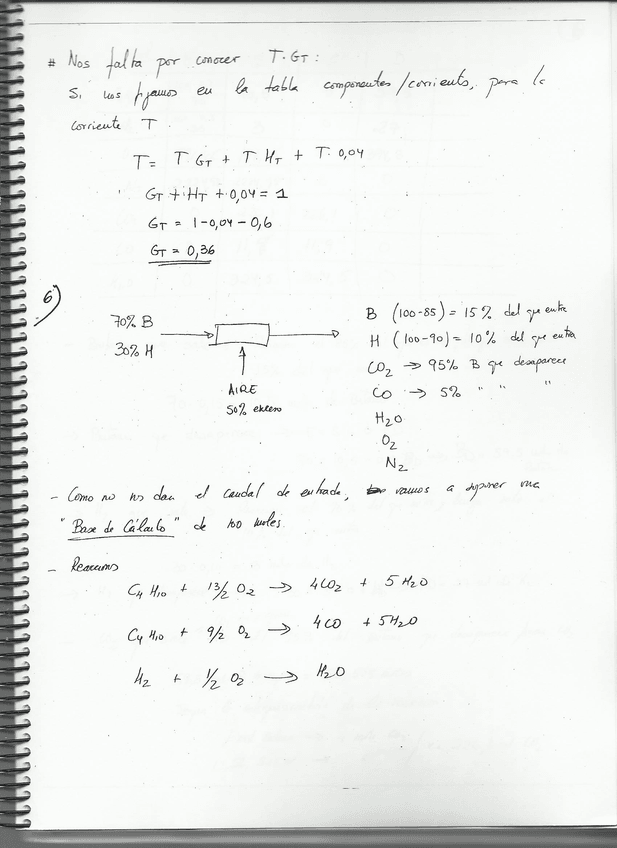 # Nos falta por conocer T·GT:
Si nos fijamos en la tabla componentes/corriente, para la
corriente T.
T = T GT + T HT + T·0,04
GT + HT + 0,04 = 1
GT = 1-0,04-0,6
GT = 0,36
6)
70% B
30% H
AIRE
50% exceso
B (100-85) = 15% del que entra
H (100-90) = 10% del que entra
CO2 → 95% B que desaparece
CO → 5% " " "
H2O
O2
N2
- Como no nos dan el caudal de entrada, vamos a suponer una
"Base de Cálculo" de 100 moles.
- Reacciones
C4H10 + 13/2 O2 → 4CO2 + 5H2O
C4H10 + 9/2 O2 → 4CO + 5H2O
H2 + 1/2 O2 → H2O